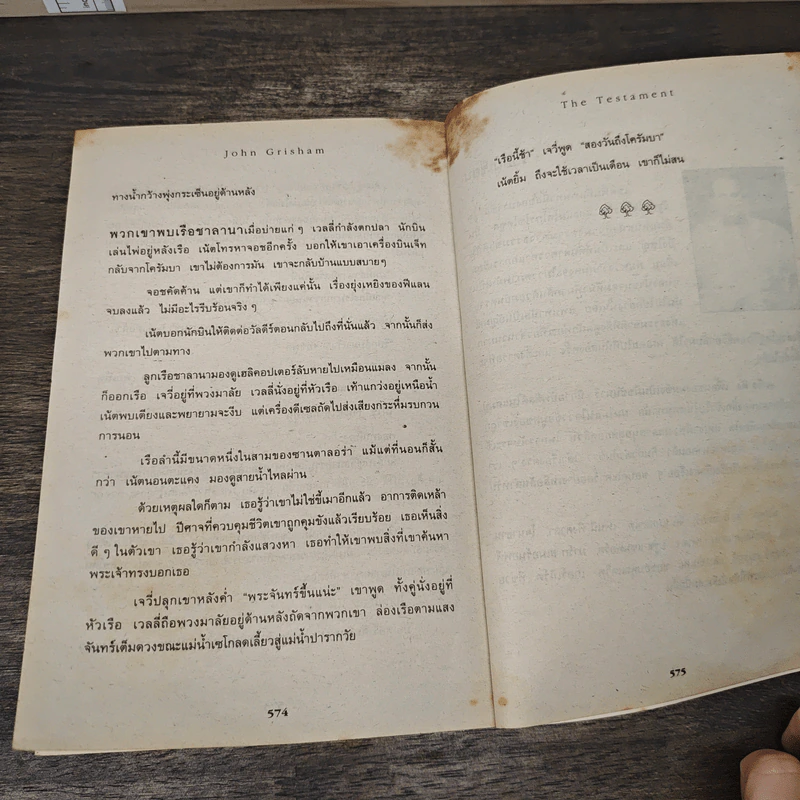 John Grisham
ทางน้ำกว้างพุ่งกระเซ็นอยู่ด้านหลัง
พวกเขาพบเรือชาลานาเมื่อบ่ายแก่ๆ เวลลี่กำลังตกปลา นักบิน
เล่นไพ่อยู่หลังเรือ เน้ตโทรหาจอชอีกครั้ง บอกให้เขาเอาเครื่องบินเจ็ท
กลับจากโครัมบา เขาไม่ต้องการมัน เขาจะกลับบ้านแบบสบายๆ
จอชคัดค้าน แต่เขาก็ทำได้เพียงแค่นั้น เรื่องยุ่งเหยิงของฟีแลน
จบลงแล้ว ไม่มีอะไรรีบร้อนจริงๆ
เน้ตบอกนักบินให้ติดต่อวัลดีร์ตอนกลับไปถึงที่นั่นแล้ว จากนั้นก็ส่ง
พวกเขาไปตามทาง
ลูกเรือชาลานามองดูเฮลิคอปเตอร์ลับหายไปเหมือนแมลง จากนั้น
ก็ออกเรือ เจวี่อยู่ที่พวงมาลัย เวลลี่นั่งอยู่ที่หัวเรือ เท้าแกว่งอยู่เหนือน้ำ
เน้ตพบเตียงและพยายามจะงีบ แต่เครื่องดีเซลถัดไปส่งเสียงกระหึ่มรบกวน
การนอน
เรือลำนี้มีขนาดหนึ่งในสามของซานตาลอร่า แม้แต่ที่นอนก็สั้น
กว่า เน้ตนอนตะแคง มองดูสายน้ำไหลผ่าน
ด้วยเหตุผลใดก็ตาม เธอรู้ว่าเขาไม่ใช่ขี้เมาอีกแล้ว อาการติดเหล้า
ของเขาหายไป ปีศาจที่ควบคุมชีวิตเขาถูกคุมขังแล้วเรียบร้อย เธอเห็นสิ่ง
ดีๆ ในตัวเขา เธอรู้ว่าเขากำลังแสวงหา เธอทำให้เขาพบสิ่งที่เขาค้นหา
พระเจ้าทรงบอกเธอ
เจวี่ปลุกเขาหลังค่ำ “พระจันทร์ขึ้นแน่ะ” เขาพูด ทั้งคู่นั่งอยู่ที่
หัวเรือ เวลลี่ถือพวงมาลัยอยู่ด้านหลังถัดจากพวกเขา ล่องเรือตามแสง
จันทร์เต็มดวงขณะแม่น้ำเซโกลดเลี้ยวสู่แม่น้ำปารากวัย
574
The Testament
“เรือนี้ช้า” เจวี่พูด “สองวันถึงโครัมบา”
เน้ตยิ้ม ถึงจะใช้เวลาเป็นเดือน เขาก็ไม่สน
575